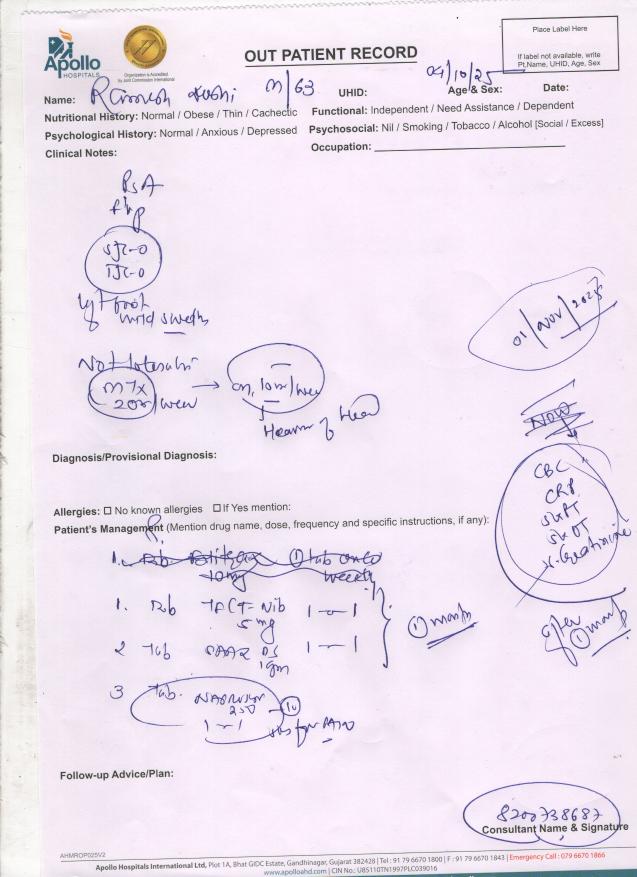 Apollo
HOSPITALS
Organization is Accredited
by Joint Commission International
OUT PATIENT RECORD
Place Label Here
If label not available, write
Pt.Name, UHID, Age, Sex
Name: Ramesh Joshi M/63 UHID: Age & Sex: Date: 04/10/25
Nutritional History: Normal / Obese / Thin / Cachectic Functional: Independent / Need Assistance / Dependent
Psychological History: Normal / Anxious / Depressed Psychosocial: Nil / Smoking / Tobacco / Alcohol [Social / Excess]
Clinical Notes: Occupation:
PsA
F/up
SJC-0
TJC-0
foot
mild
01/Nov/2025
Not
MTX
→ on 10mg/wee
Now
Diagnosis/Provisional Diagnosis:
CBC
CRP
SGPT
SGOT
S. Creatinine
after
① month
Allergies: ☐ No known allergies ☐ If Yes mention:
Patient's Management (Mention drug name, dose, frequency and specific instructions, if any):
1. Tab ① tab once
10mg weekly
1. Tab 5mg 1-1
① month
2 Tab SAAZ DS 1-1
1gm
3 Tab. 250
1-1 sos for pain
Follow-up Advice/Plan:
8200738687
Consultant Name & Signature
AHMROP025V2
Apollo Hospitals International Ltd, Plot 1A, Bhat GIDC Estate, Gandhinagar, Gujarat 382428 | Tel : 91 79 6670 1800 | F : 91 79 6670 1843 | Emergency Call : 079 6670 1866
www.apolloahd.com | CIN No.: U85110TN1997PLC039016